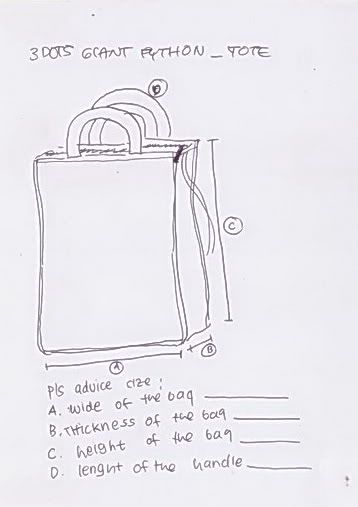 3DOTS GIANT PYTHON _ TOTE
D
C
B
A
Pls advice size :
A. wide of the bag ________
B. Thickness of the bag ________
C. height of the bag ________
D. lenght of the handle ________